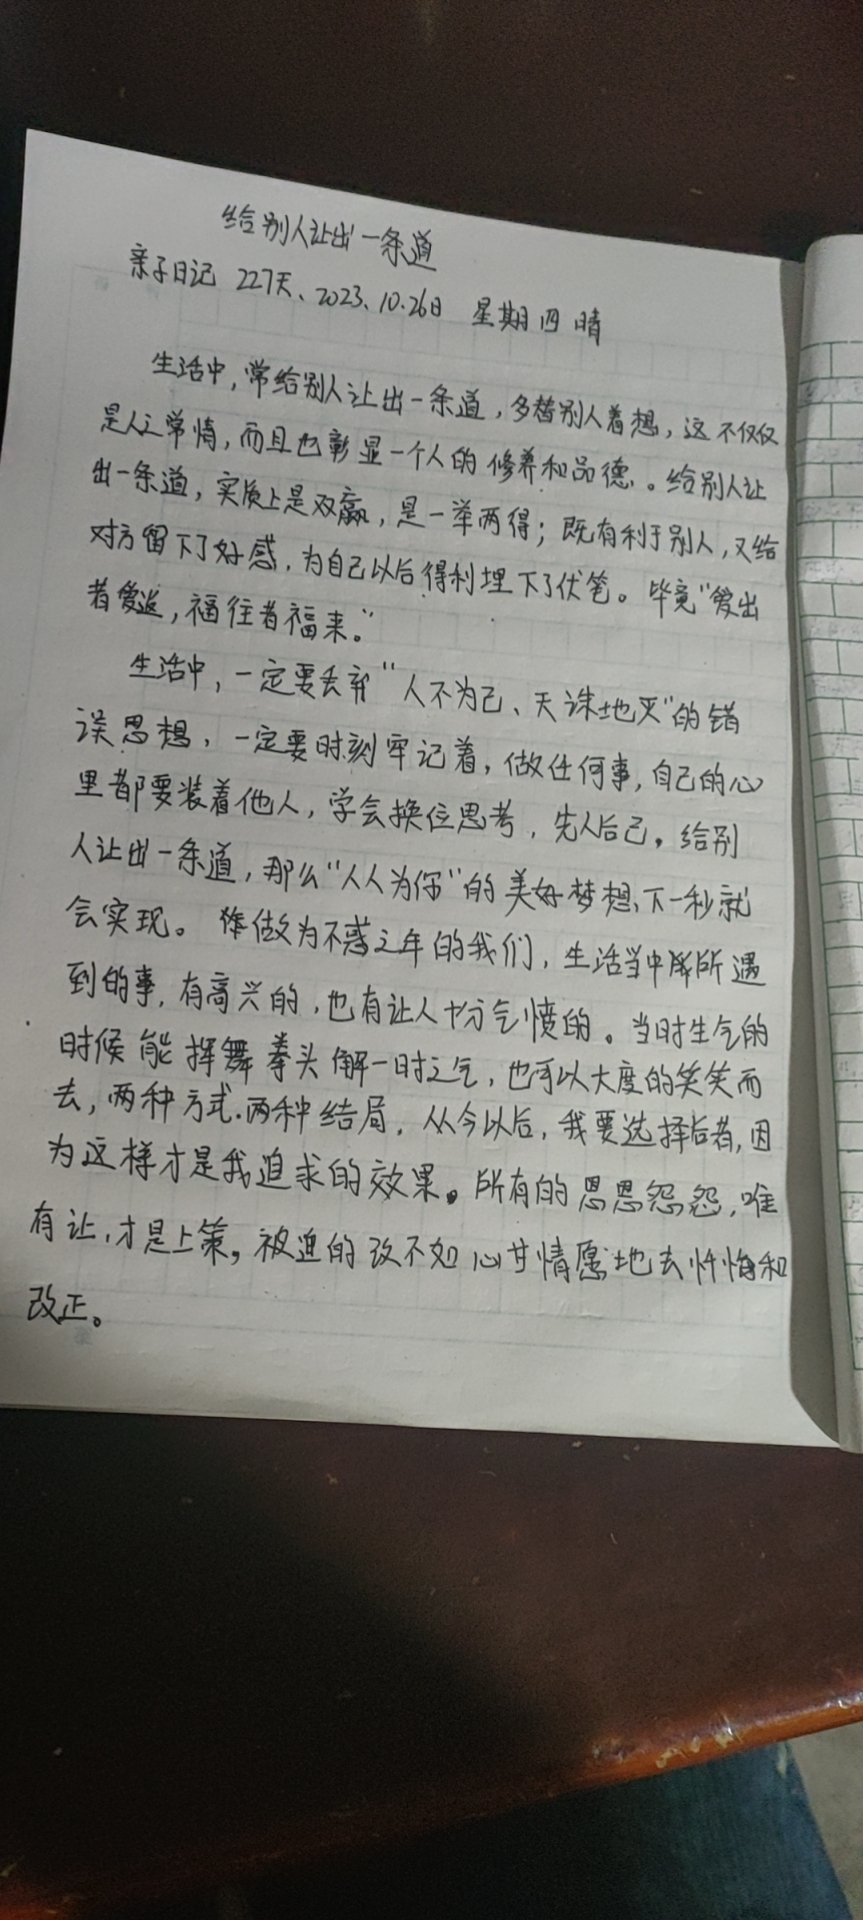 给别人让出一条道
亲子日记 227天、2023、10.26日 星期四 晴
生活中,常给别人让出一条道,多替别人着想,这不仅仅
是人之常情,而且也彰显一个人的修养和品德。给别人让
出一条道,实质上是双赢,是一举两得;既有利于别人,又给
对方留下了好感,为自己以后得利埋下了伏笔。毕竟“爱出
者爱返,福往者福来。”
生活中,一定要丢弃“人不为己、天诛地灭”的错
误思想,一定要时刻牢记着,做任何事,自己的心
里都要装着他人,学会换位思考,先人后己。给别
人让出一条道,那么“人人为你”的美好梦想,下一秒就
会实现。做为不惑之年的我们,生活当中所遇
到的事,有高兴的,也有让人十分气愤的。当时生气的
时候能挥舞拳头解一时之气,也可以大度的笑笑而
去,两种方式.两种结局,从今以后,我要选择后者,因
为这样才是我追求的效果。所有的恩恩怨怨,唯
有让,才是上策。被迫的改不如心甘情愿地去忏悔和
改正。